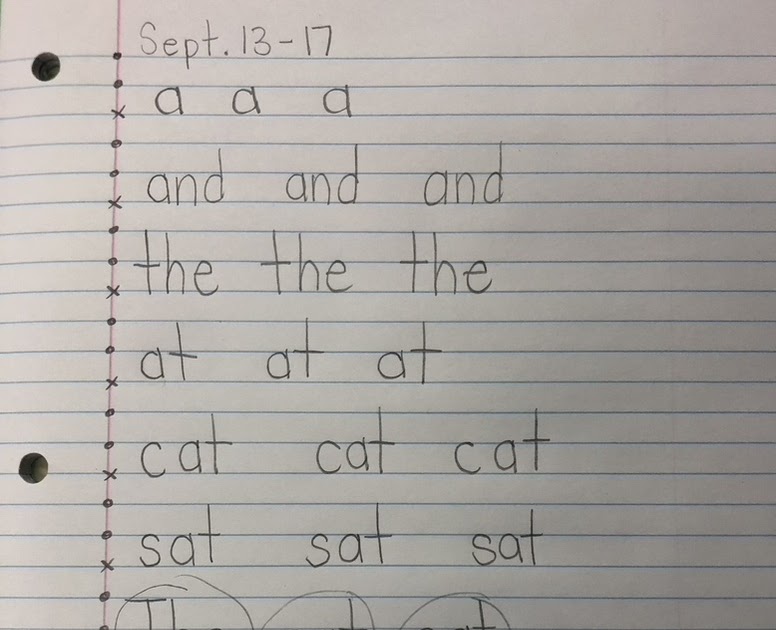 Sept. 13-17
a a a
and and and
the the the
at at at
cat cat cat
sat sat sat